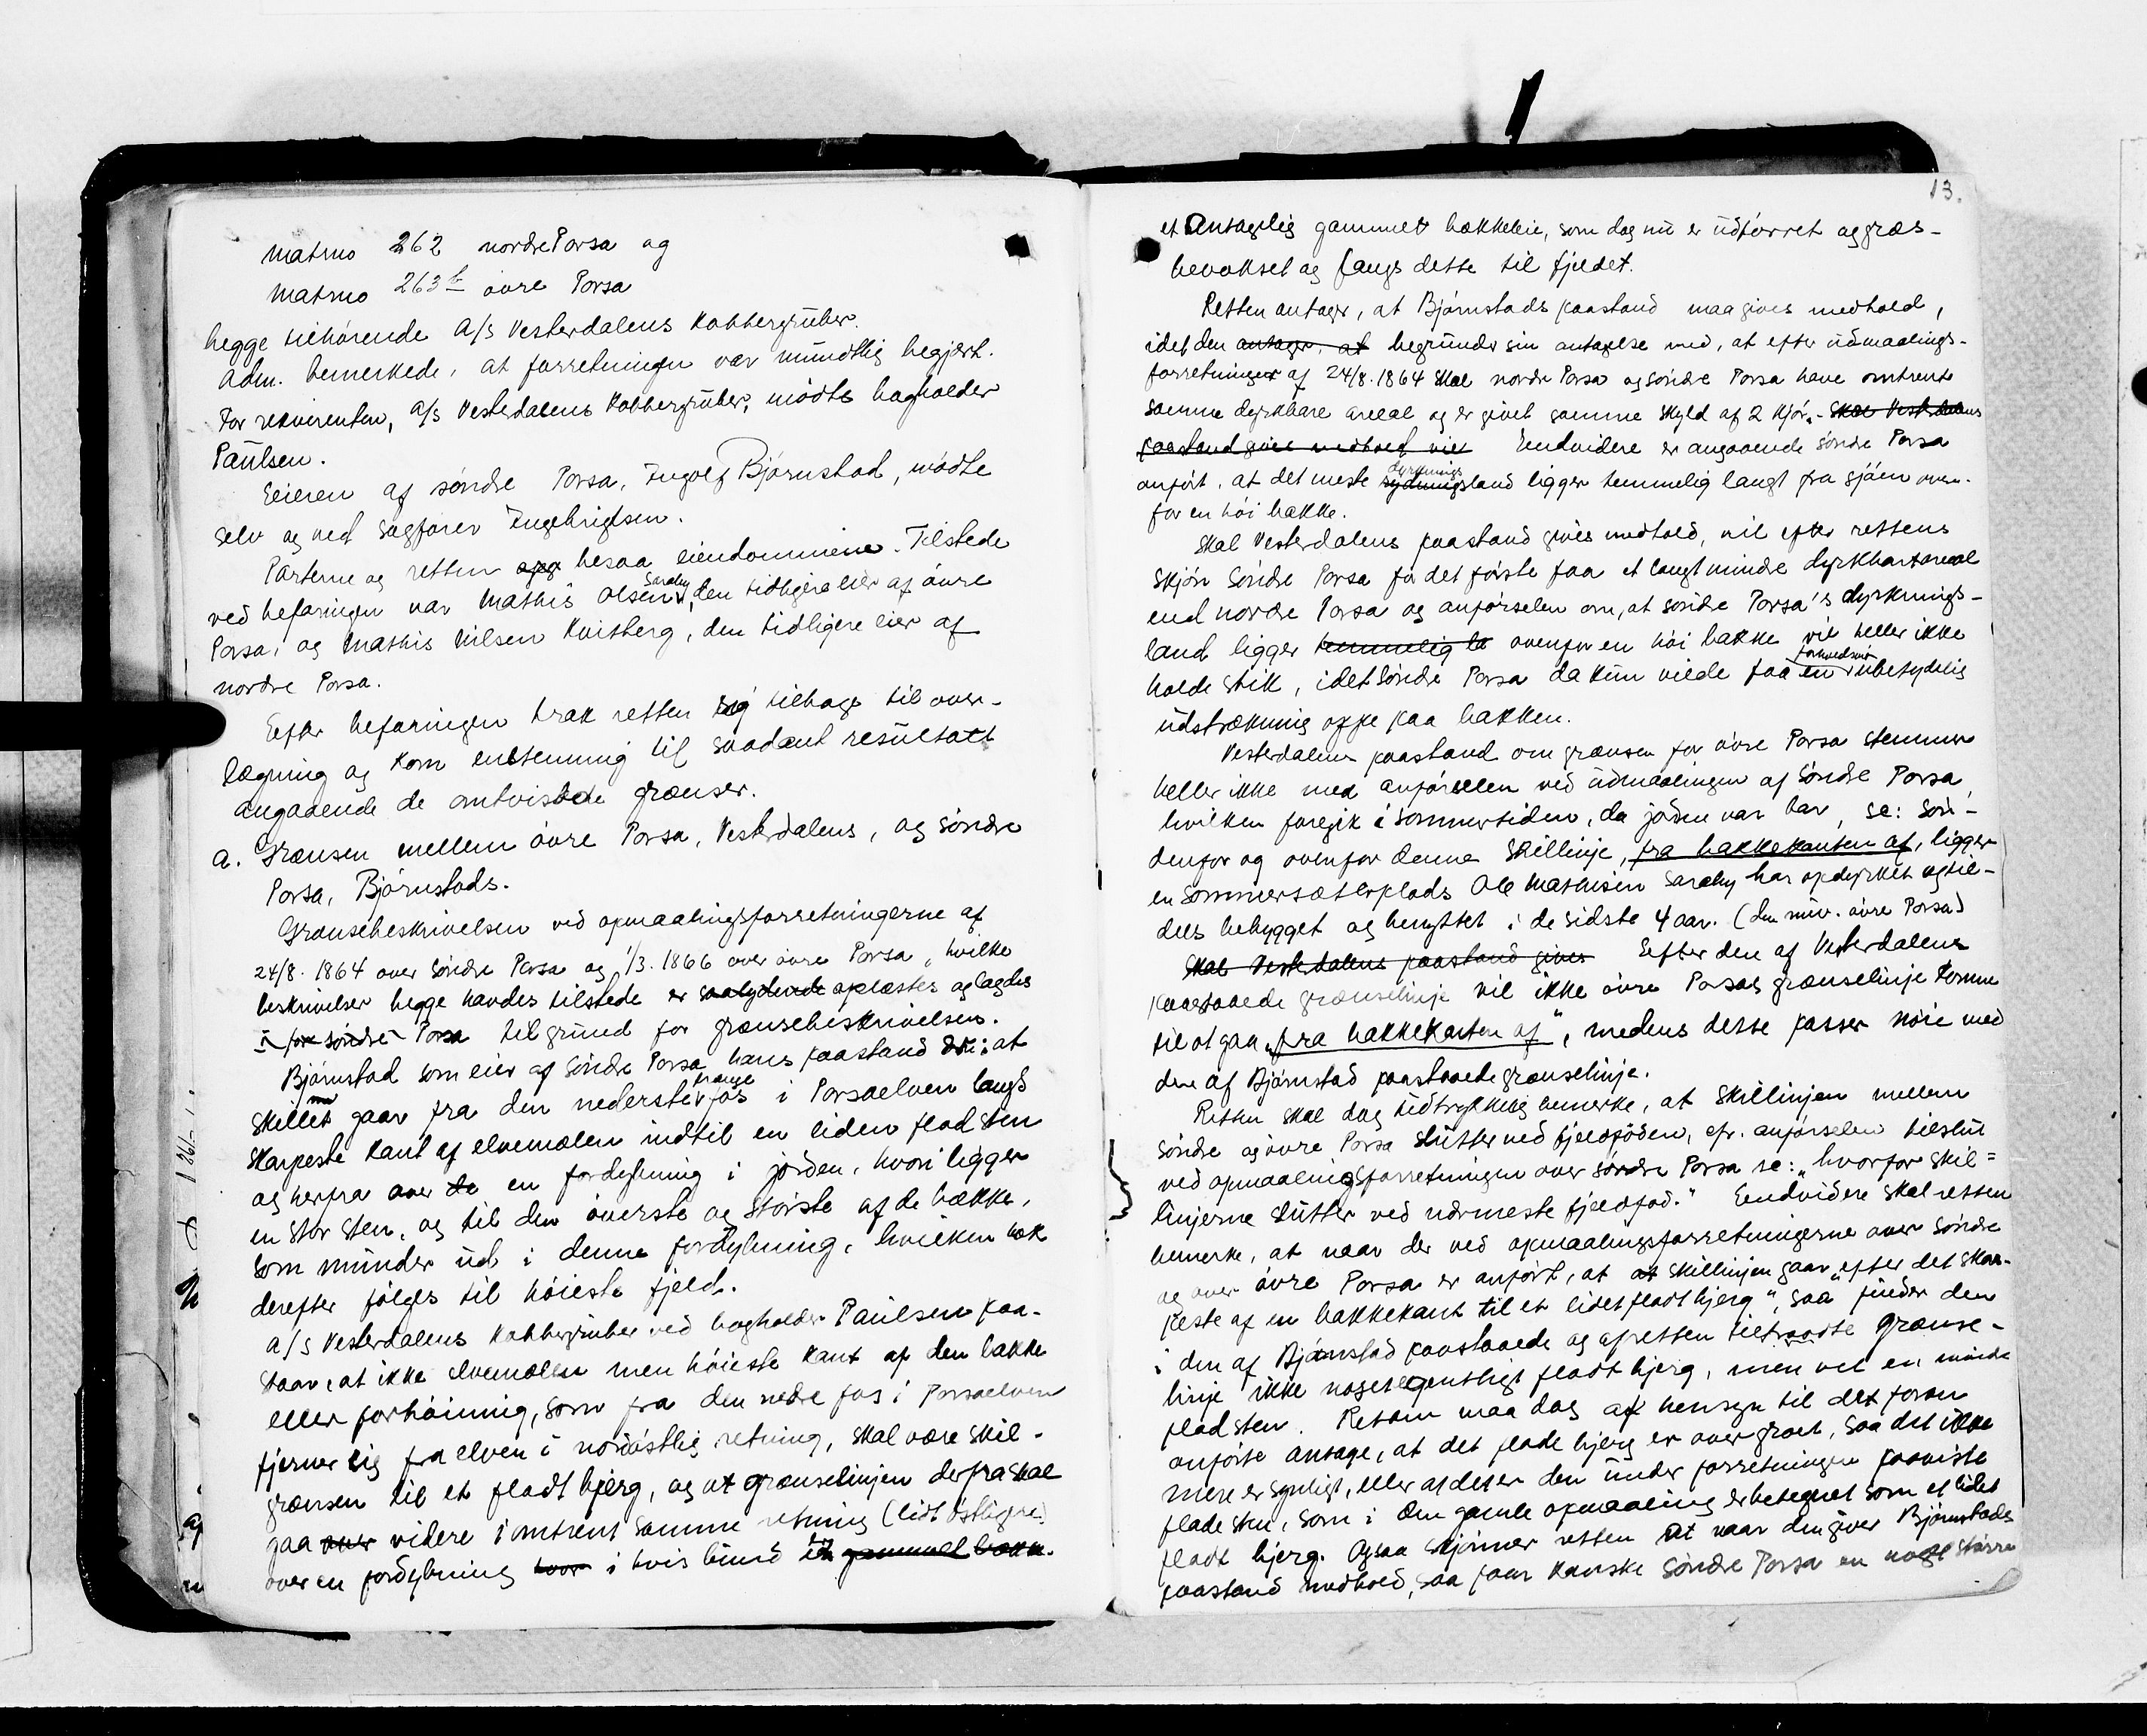 matrno 262 nordre Porsa og
matrno 263 b øvre Porsa
begge tilhørende A/S Vesterdalens Kobbergrüber.
Adm. bemerkede, at forretningen var mündtlig begjært.
For rekvirenten, A/S Vesterdalens Kobbergrüber, mødte bogholder
Paulsen.
Eieren af søndre Porsa, Ingolf Bjørnstad, mødte
selv og ved sagfører Ingebrigtsen.
Parterne og retten besaa eiendommene. Tilstede
ved befaringen var Mathis Olsen Saraby, den tidligere eier af øvre
Porsa, og Mathis Nilsen Kvitberg, den tidligere eier af
nordre Porsa.
Efter befaringen trak retten sig tilbage til over-
lægning og kom enstemmig til saadant resultatt
angaaende de omtvistede grænser.
a. Grænsen mellem øvre Porsa, Vesterdalens, og søndre
Porsa, Bjørnstads.
Grænsebeskrivelsen ved opmaalingsforretningerne af
24/8. 1864 over søndre Porsa og 1/3. 1866 over øvre Porsa, hvilke
beskrivelser begge havdes tilstede er saalydende oplæstes og lagdes
i for søndre Porsa til grund for grænsebeskrivelsen.
Bjørnstad som eier af søndre Porsa, hans paastand at
skillet nu gaar fra den nederste trange fos i Porsaelven langs
skarpeste kant af elvemælen indtil en liden flad sten
og herfra over de en fordybning i jorden, hvori ligger
en stor sten, og til den øverste og største af de bække,
som münder üd i denne fordybning, hvilken bæk
derefter følges til høieste fjeld.
A/S Vesterdalens Kobbergrüber ved bogholder Paulsen paa-
staar, at ikke elvemælen men høieste kant af den bakke
eller forhøining, som fra den nedre fos i Porsaelven
fjerner sig fra elven i nordøstlig retning, skal være skil-
grænsen til et fladt bjerg, og at grænselinjen derfra skal
gaa over videre i omtrent samme retning (lidt østligere)
over en fordybning hvor i hvis bünd en gammel bæk.
13.
et antagelig gammelt bækkeleie, som dog nü er üdtørret og græs-
bevokset og langs dette til fjeldet.
Retten antager, at Bjørnstads paastand maa gives medhold,
idet den antager, at begründer sin antagelse med, at efter üdmaalings-
forretningen af 24/8. 1864 skal nordre Porsa og søndre Porsa have omtrent
samme dyrkbare areal og er givet samme skyld af 2 kjør. - Skal Vesterdalens
paastand gives medhold vil Eendvidere er angaaende søndre Porsa
anført, at det meste dyrknings rydningsland ligger temmelig langt fra sjøen oven-
for en høi bakke.
Skal Vesterdalens paastand gives medhold, vil efter rettens
skjøn søndre Porsa for det første faa et langt mindre dyrkbart areal
end nordre Porsa og anførselen om, at søndre Porsa's dyrknings-
land ligger temmelig la ovenfor en høi bakke vil heller ikke
holde stik, idet søndre Porsa da kün vilde faa en forholdsvis übetydelig
üdstrækning oppe paa bakken.
Vesterdalens paastand om grænsen for øvre Porsa stemmer
heller ikke med anførselen ved üdmaalingen af søndre Porsa,
hvilken foregik i sommertiden, da jorden var bar, se: søn-
denfor og ovenfor denne skillinje, fra bakkekanten af, ligger
en sommersæterplads Ole Mathisen Saraby har opdyrket og til-
dels bebygget og benyttet i de sidste 4 aar. (den nüv. øvre Porsa)
Skal Vesterdalens paastand gives Eefter den af Vesterdalens
paastaaede grænselinje vil ikke øvre Porsas grænselinje komme
til at gaa "fra bakkekanten af", medens dette passer nøie med
den af Bjørnstad paastaaede grænselinje.
Retten skal dog üdtrykkelig bemerke, at skillinjen mellem
søndre og øvre Porsa slütter ved fjeldfoden, cfr. anførselen tilslüt
ved opmaalingsforretningen over søndre Porsa se: "hvorfor skil=
linjerne slütter ved nærmeste fjeldfod." Eendvidere skal retten
bemerke, at naar der ved opmaalingsforretningerne over søndre
og over øvre Porsa er anført, at at skillinjen gaar "efter det skar-
peste af en bakkekant til et lidet fladt bjerg", saa finder den
i den af Bjørnstad paastaaede og af retten tiltraadte grænse-
linje ikke noget egentligt fladt bjerg, men vel en mindre
flad sten. Retten maa dog af hensyn til det foran
anførte antage, at det flade bjerg er overgroet, saa det ikke
mere er synligt, eller at det er den ünder forretningen paaviste
flade sten, som i den gamle opmaaling er betegnet som et lidet
fladt bjerg. Ogsaa skjønner retten at naar den giver Bjørnstads
paastand medhold, saa faar kanske søndre Porsa en noget større